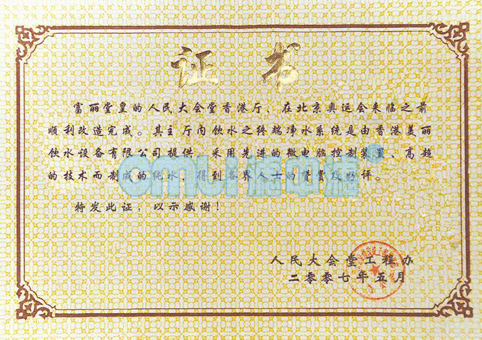 证书
富丽堂皇的人民大会堂香港厅、在北京奥运会来临之前
顺利改造完成。其主厅内饮水之终端净水系统是由香港美丽
饮水设备有限公司提供 采用先进的微电脑控制装置、高超
的技术而制成的纯水 得到各界人士的赞赏 好评。
特发此证,以示感谢!
人民大会堂工程办
二零零七年五月